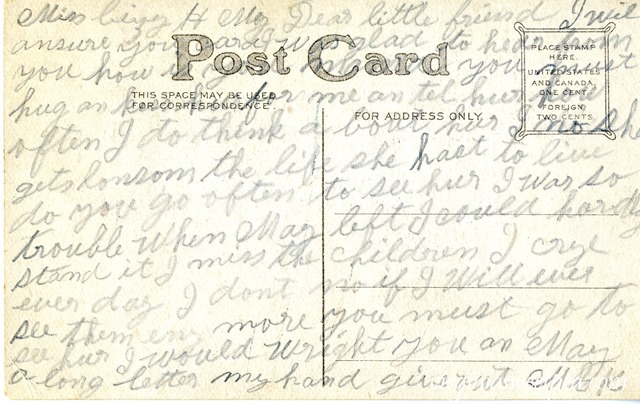 Miss H My Dear little friend I will
ansure your card I was glad to hear from
you how is you must
Post Card
PLACE STAMP
HERE
UNITED STATES
AND CANADA
ONE CENT
FOREIGN
TWO CENTS
THIS SPACE MAY BE USED
FOR CORRESPONDENCE.
FOR ADDRESS ONLY
hug an for me an tel hur how
often I to think a bout hur I no she
gets lonsom the life she hast to live
do you go often to see hur I was so
trouble When May left I could hardly
stand it I miss the children I crye
ever day I dont no if I Will ever
see them eny more you must go to
see hur I would Wright you an May
a long letter my hand givs out M E K